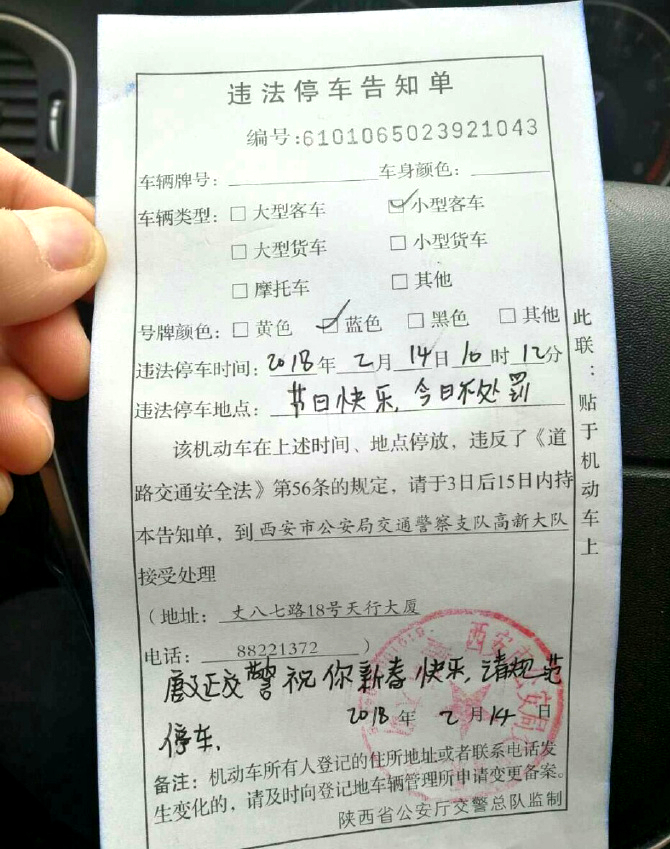 违法停车告知单
编号:6101065023921043
车辆牌号: 车身颜色:
车辆类型: □大型客车 ☑小型客车
□大型货车 □小型货车
□摩托车 □其他
号牌颜色: □黄色 ☑蓝色 □黑色 □其他
违法停车时间: 2018年 2月 14日 10时 12分
违法停车地点: 节日快乐,今日不处罚
该机动车在上述时间、地点停放,违反了《道
路交通安全法》第56条的规定,请于3日后15日内持
本告知单,到西安市公安局交通警察支队高新大队
接受处理
(地址: 丈八七路18号天行大厦
电话: 88221372 )
交警祝你新春快乐,请规范
2018年 2月14日
停车,
备注:机动车所有人登记的住所地址或者联系电话发
生变化的,请及时向登记地车辆管理所申请变更备案。
陕西省公安厅交警总队监制
此联:贴于机动车上